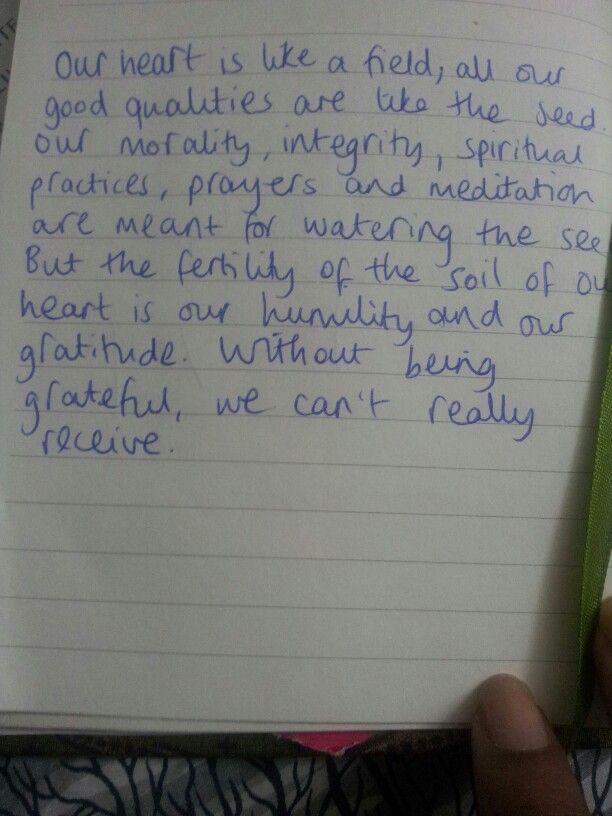 Our heart is like a field, all our
good qualities are like the seed.
our morality, integrity, spiritual
practices, prayers and meditation
are meant for watering the see
But the fertility of the soil of ou
heart is our humility and our
gratitude. Without being
grateful, we can't really
receive.